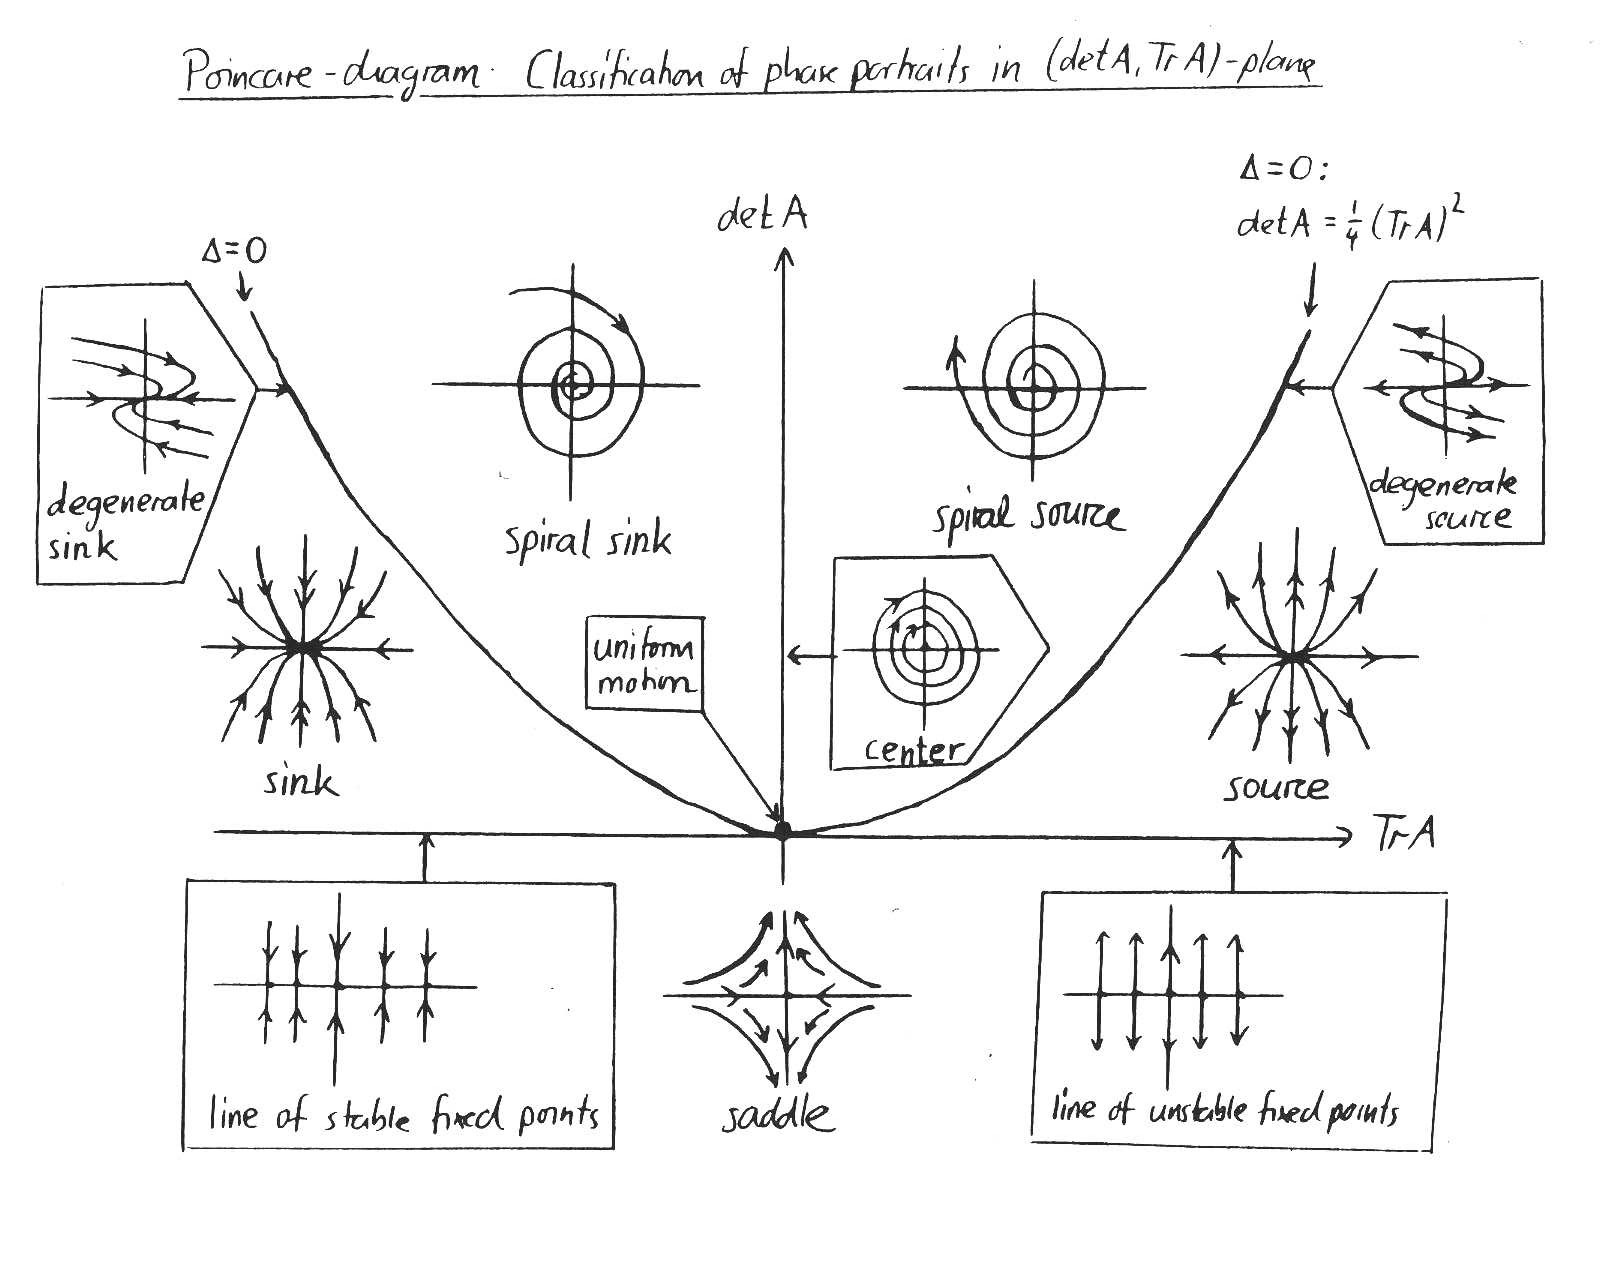 Poincare-diagram: Classification of phase portraits in (detA, TrA)-plane
Δ=0:
detA = 1/4 (TrA)²
detA
Δ=0
degenerate
sink
spiral sink
spiral source
degenerate
source
uniform
motion
center
sink
source
TrA
line of stable fixed points
saddle
line of unstable fixed points